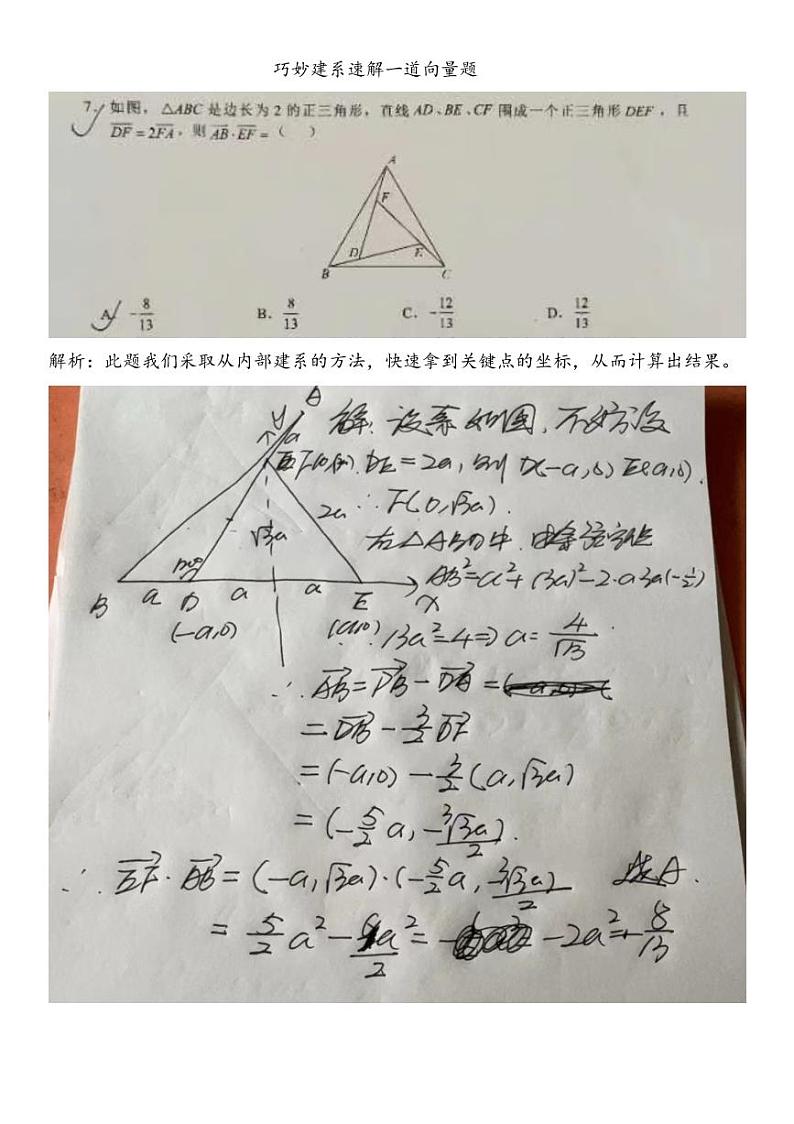 巧妙建系速解一道向量题
7. 如图，△ABC 是边长为 2 的正三角形，直线 AD、BE、CF 围成一个正三角形 DEF，且
DF = 2FA，则 AB·EF =（ ）
A
F
D
E
B
C
A. -8/13 B. 8/13 C. -12/13 D. 12/13
解析：此题我们采取从内部建系的方法，快速拿到关键点的坐标，从而计算出结果。
解：设系如图，不妨设
DE=2a，则 D(-a,0) E(a,0).
∴ F(0,√3a).
在△ABD中，由余弦定理
AB²=a²+(3a)²-2·a·3a(-1/2)
∴13a²=4⇒a=4/√13
y
A
a
2a
√3a
120°
B a D a a E x
(-a,0) (a,0)
∴AB=DB-DA=
=DB-3/2DF
=(-a,0)-3/2(a,√3a)
=(-5/2a,-3√3a/2).
∴EF·AB=(-a,√3a)·(-5/2a,-3√3a/2) 选A.
=5/2a²-9a²/2=-2a²=-8/13